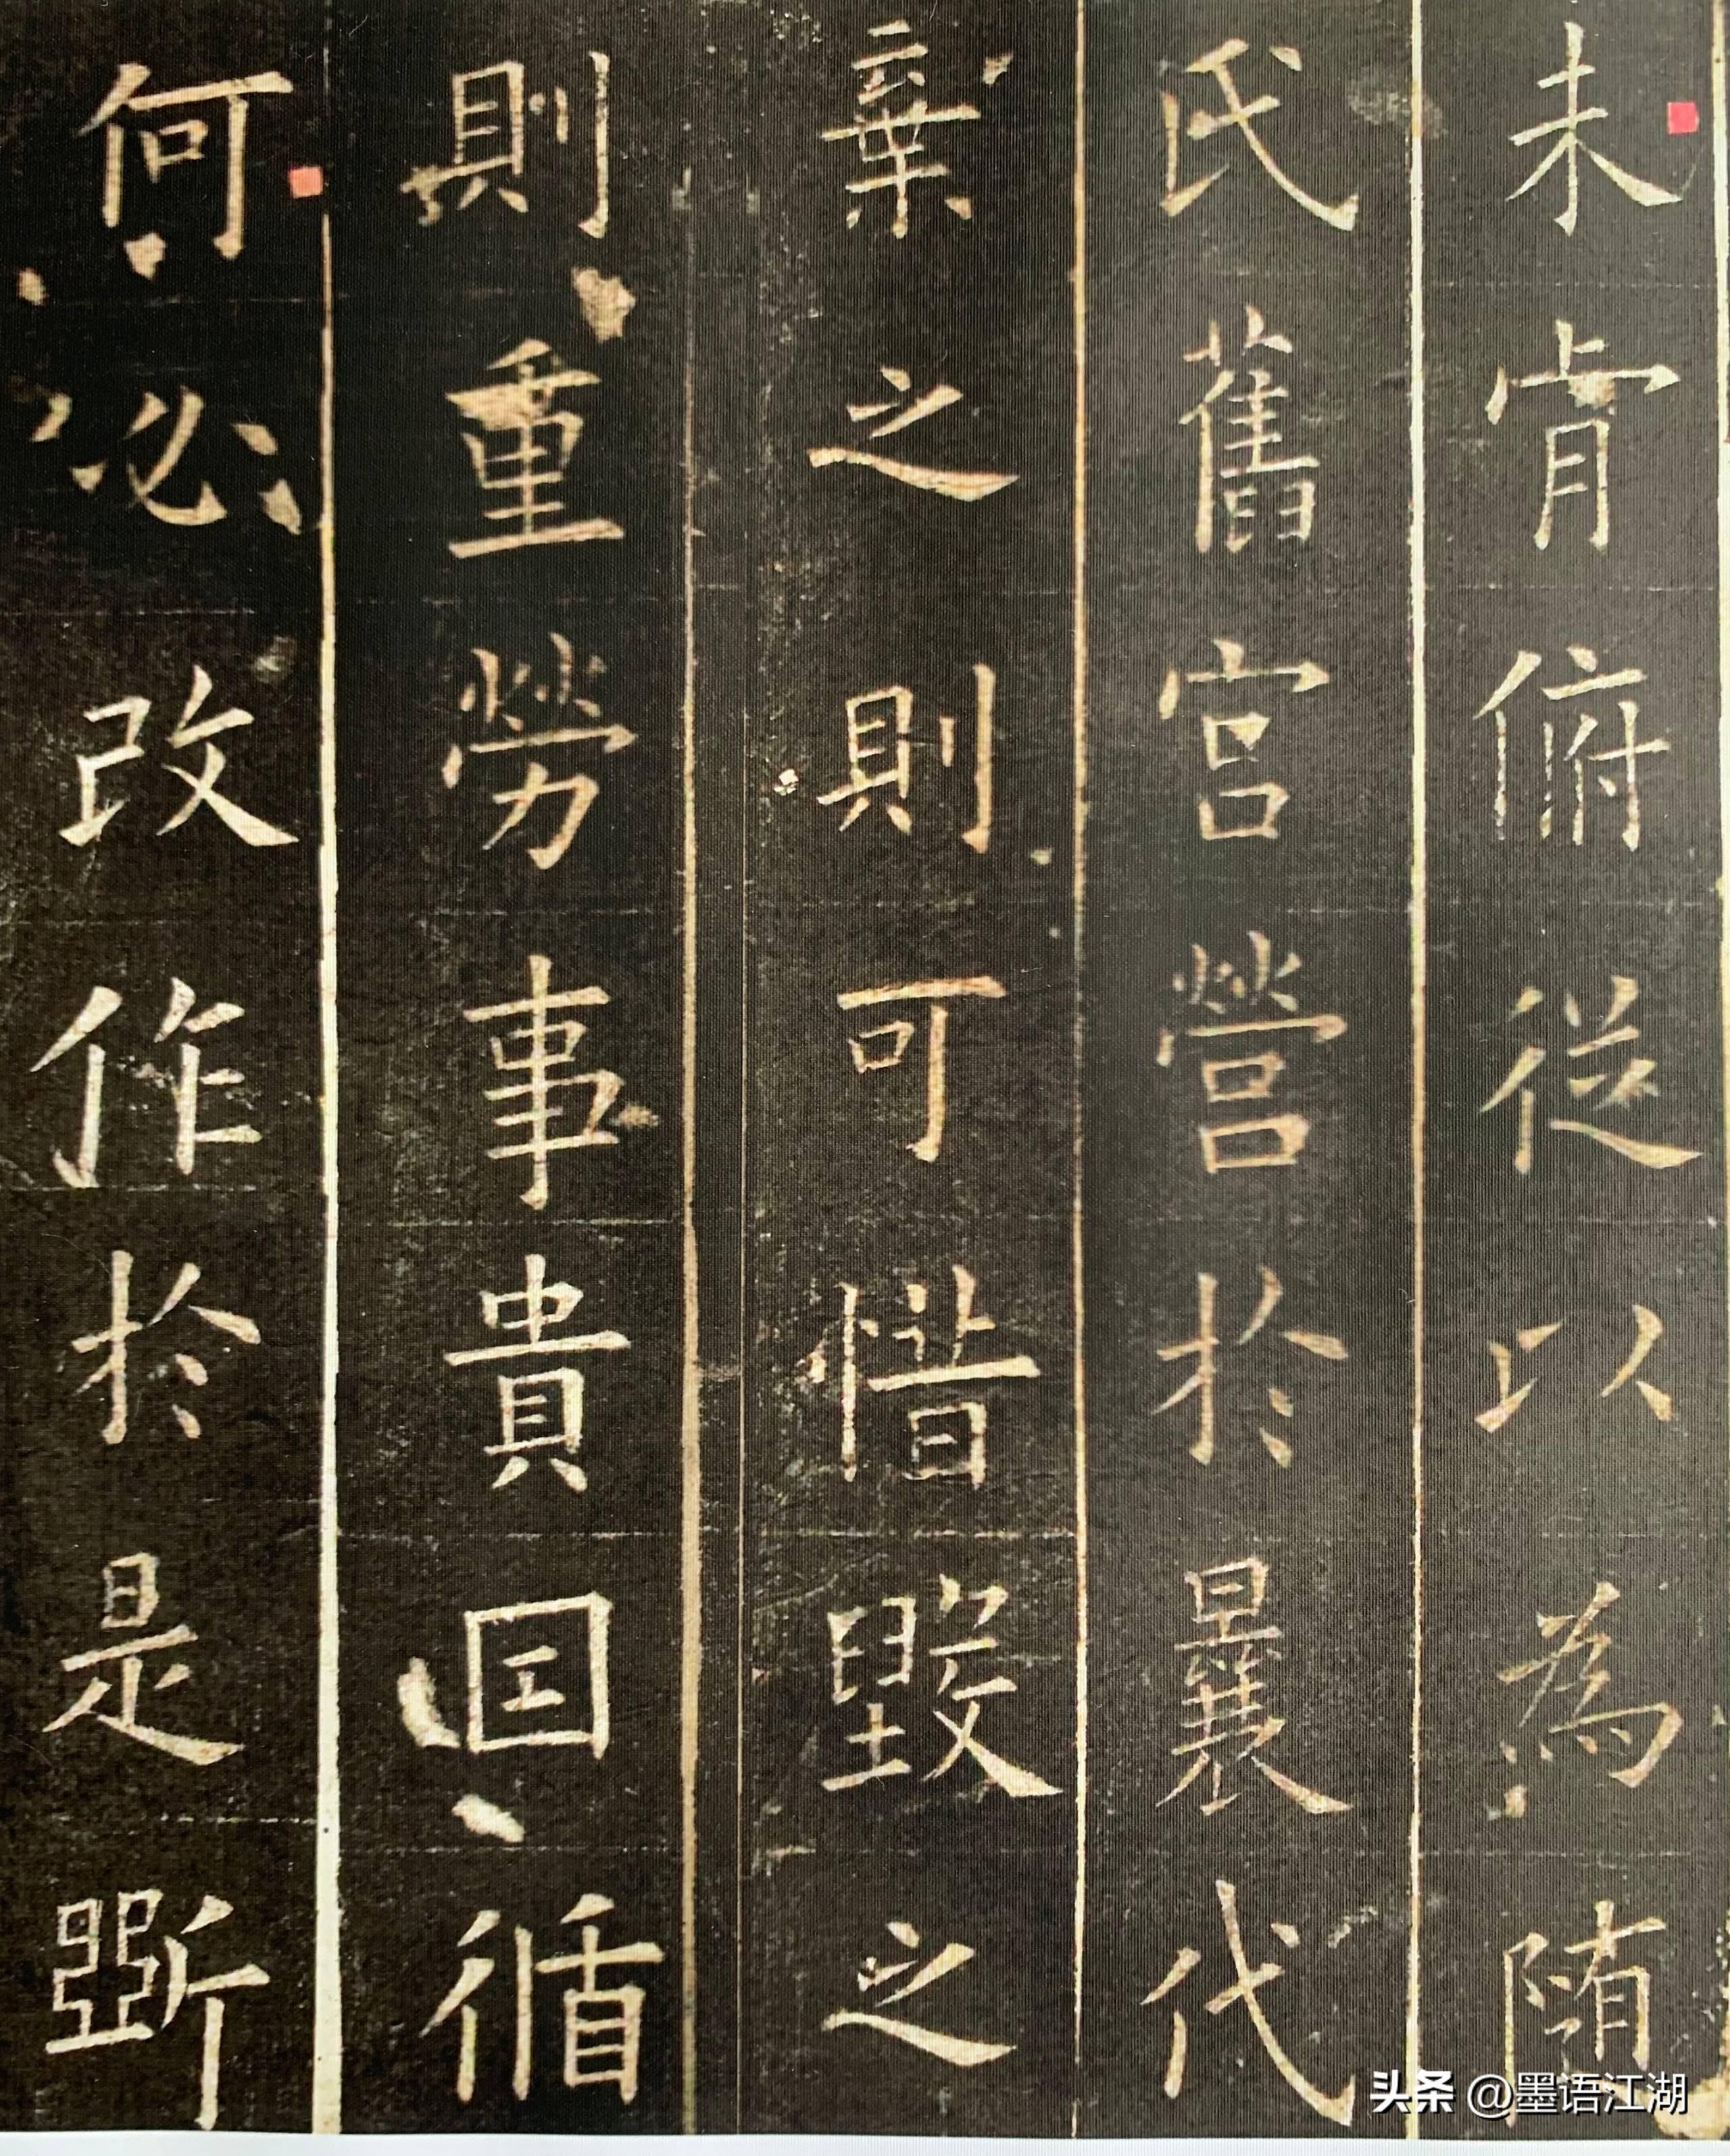 未肯俯從以為隋
氏舊宮營於曩代
棄之則可惜毀之
則重勞事貴因循
何必改作於是斲
头条 @墨语江湖